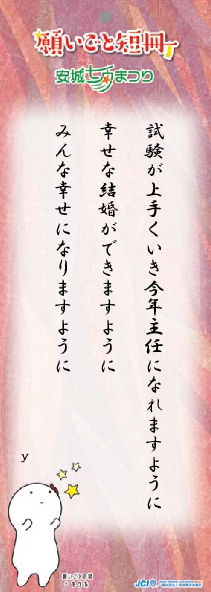 願いごと短冊
安城七夕まつり
試験が上手くいき今年主任になれますように
幸せな結婚ができますように
みんな幸せになりますように
y
願いごと妖精
きさる
JCI